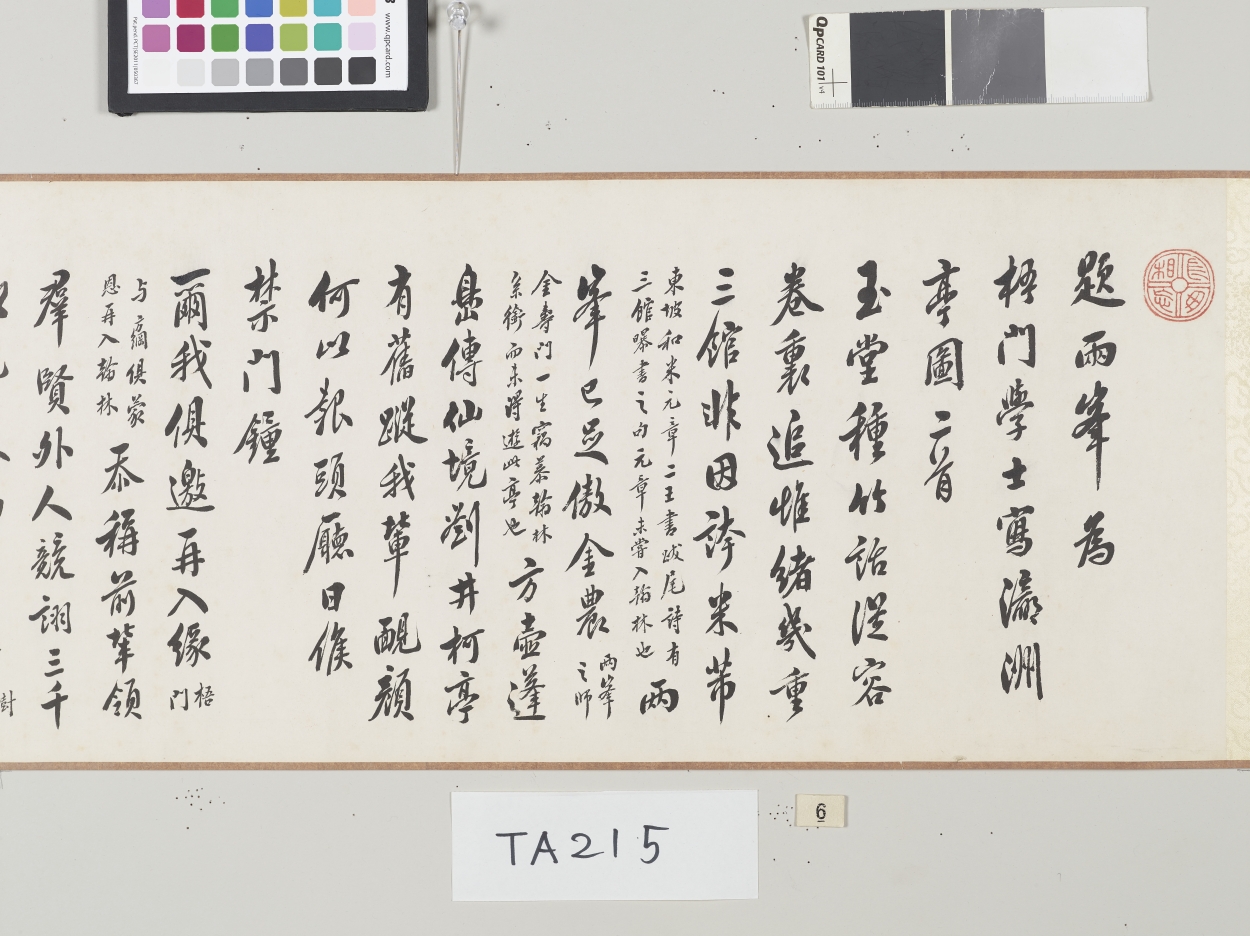 題兩峯為
梧門學士寫瀛洲
亭圖二首
玉堂種竹話從容
卷裏追惟緒幾重
三館非因誇米芾
東坡和米元章二王書跋尾詩有
三館曝書之句元章未嘗入翰林也
兩
峯已足傲金農
兩峯
之師
金壽門一生竊慕翰林
系銜而未得遊此亭也
方壺蓬
島傳仙境劉井柯亭
有舊蹤我輩靦顏
何以報頭廳日俟
禁門鐘
爾我俱邀再入緣
梧
門
与綱俱蒙
恩再入翰林
忝稱前輩領
羣賢外人競詡三千
QPCARD 101 v4
www.qpcard.com
TA215
6